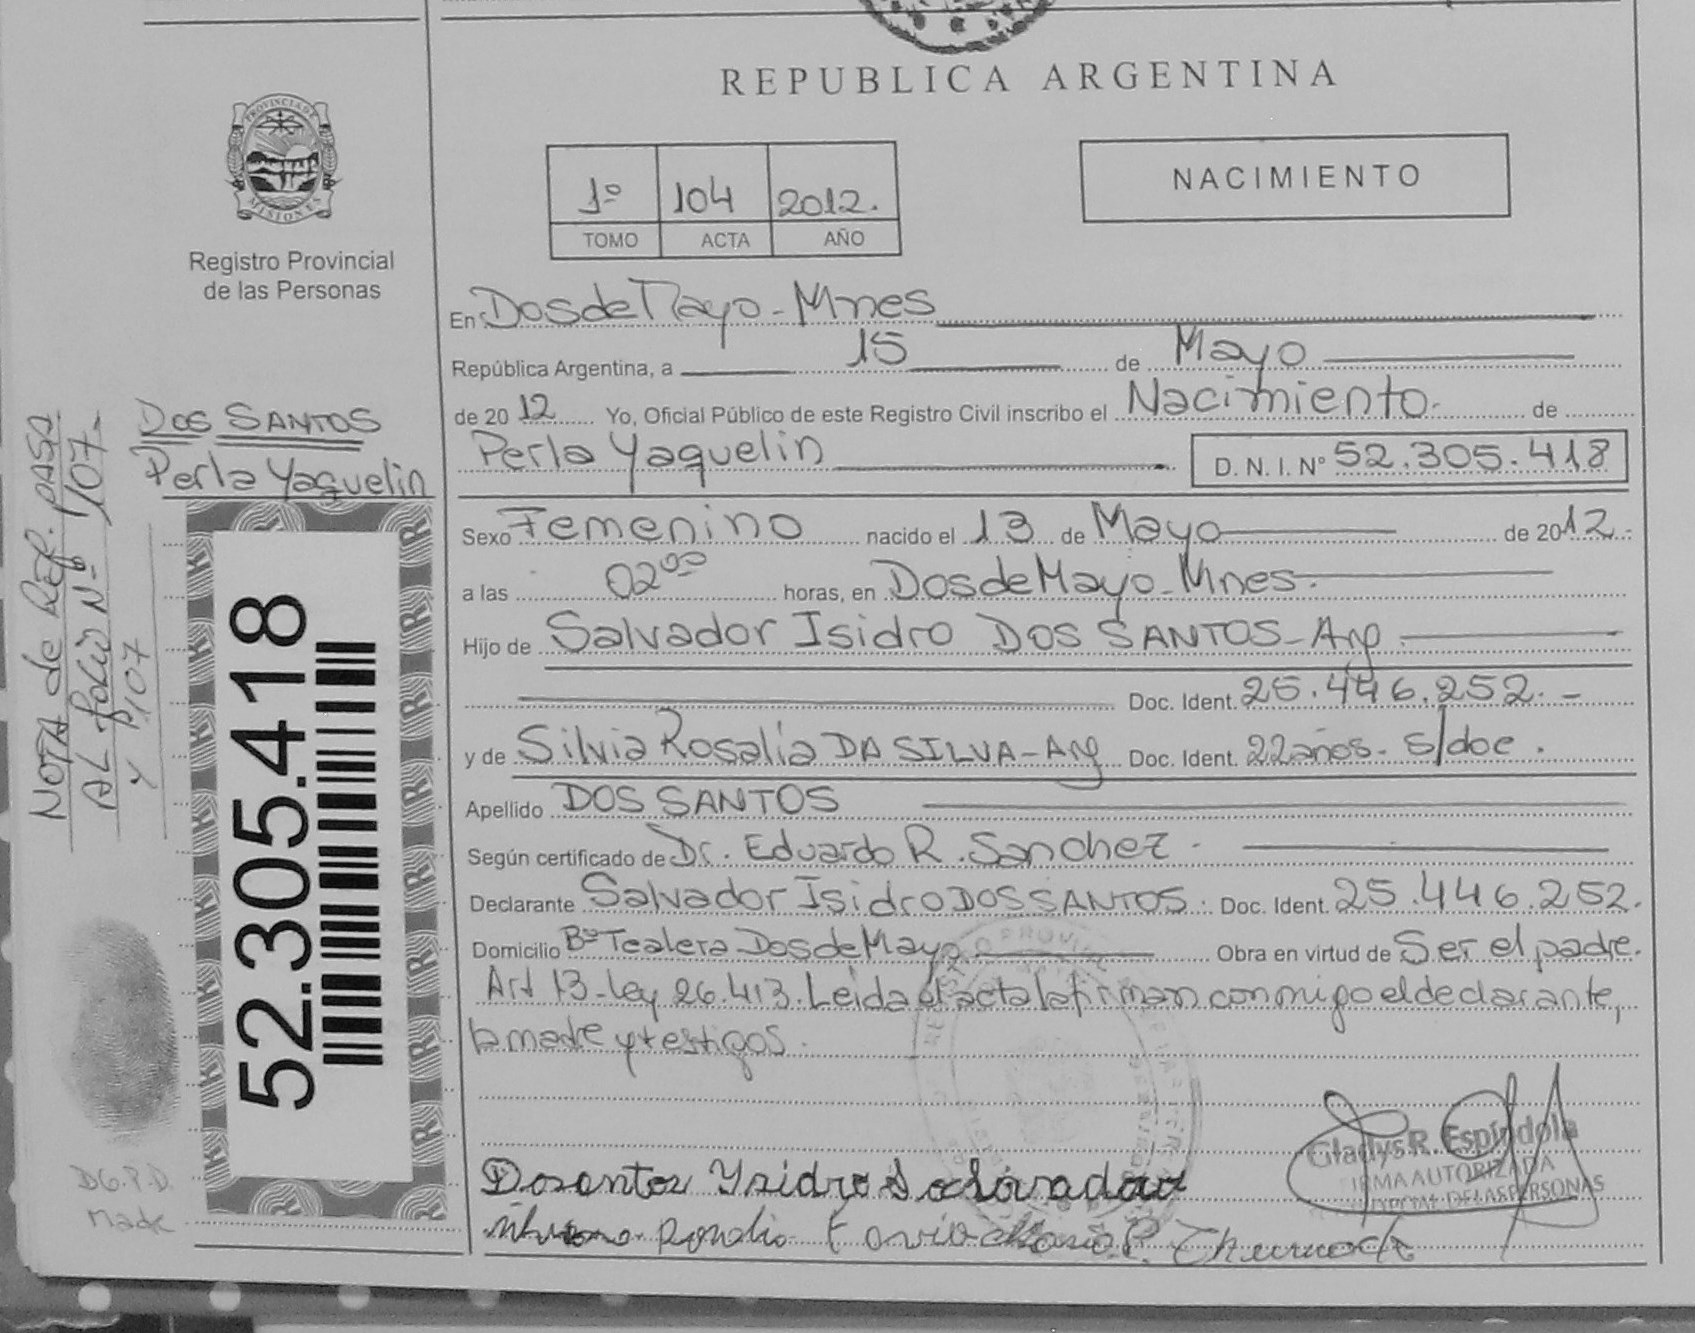 REPUBLICA ARGENTINA
PROVINCIA DE
MISIONES
Registro Provincial
de las Personas
1º 104 2012.
TOMO ACTA AÑO
NACIMIENTO
En Dos de Mayo - Mnes
República Argentina, a 15 de Mayo
de 2012 Yo, Oficial Público de este Registro Civil inscribo el Nacimiento. de
Perla Yaquelin D.N.I. Nº 52.305.418
Sexo Femenino nacido el 13 de Mayo de 2012.-
a las 02⁰⁰ horas, en Dos de Mayo - Mnes.
Hijo de Salvador Isidro DOS SANTOS - Arg
Doc. Ident. 25.446.252. -
y de Silvia Rosalía DA SILVA - Arg Doc. Ident. 22 años - s/doc.
Apellido DOS SANTOS
Según certificado de Dr. Eduardo R. Sanchez.
Declarante Salvador Isidro DOS SANTOS. Doc. Ident. 25.446.252.
Domicilio Bº Tealera Dos de Mayo Obra en virtud de Ser el padre.
Art 13 - Ley 26.413. Leida el acta la firman conmigo el declarante,
la madre y testigos.
Gladys R. Espíndola
FIRMA AUTORIZADA
DE LAS PERSONAS
DOS SANTOS
Perla Yaquelin
52.305.418
NOTA de Ref. PASA
AL folio Nº 107-
y 107
D.G.P.D.
Madre